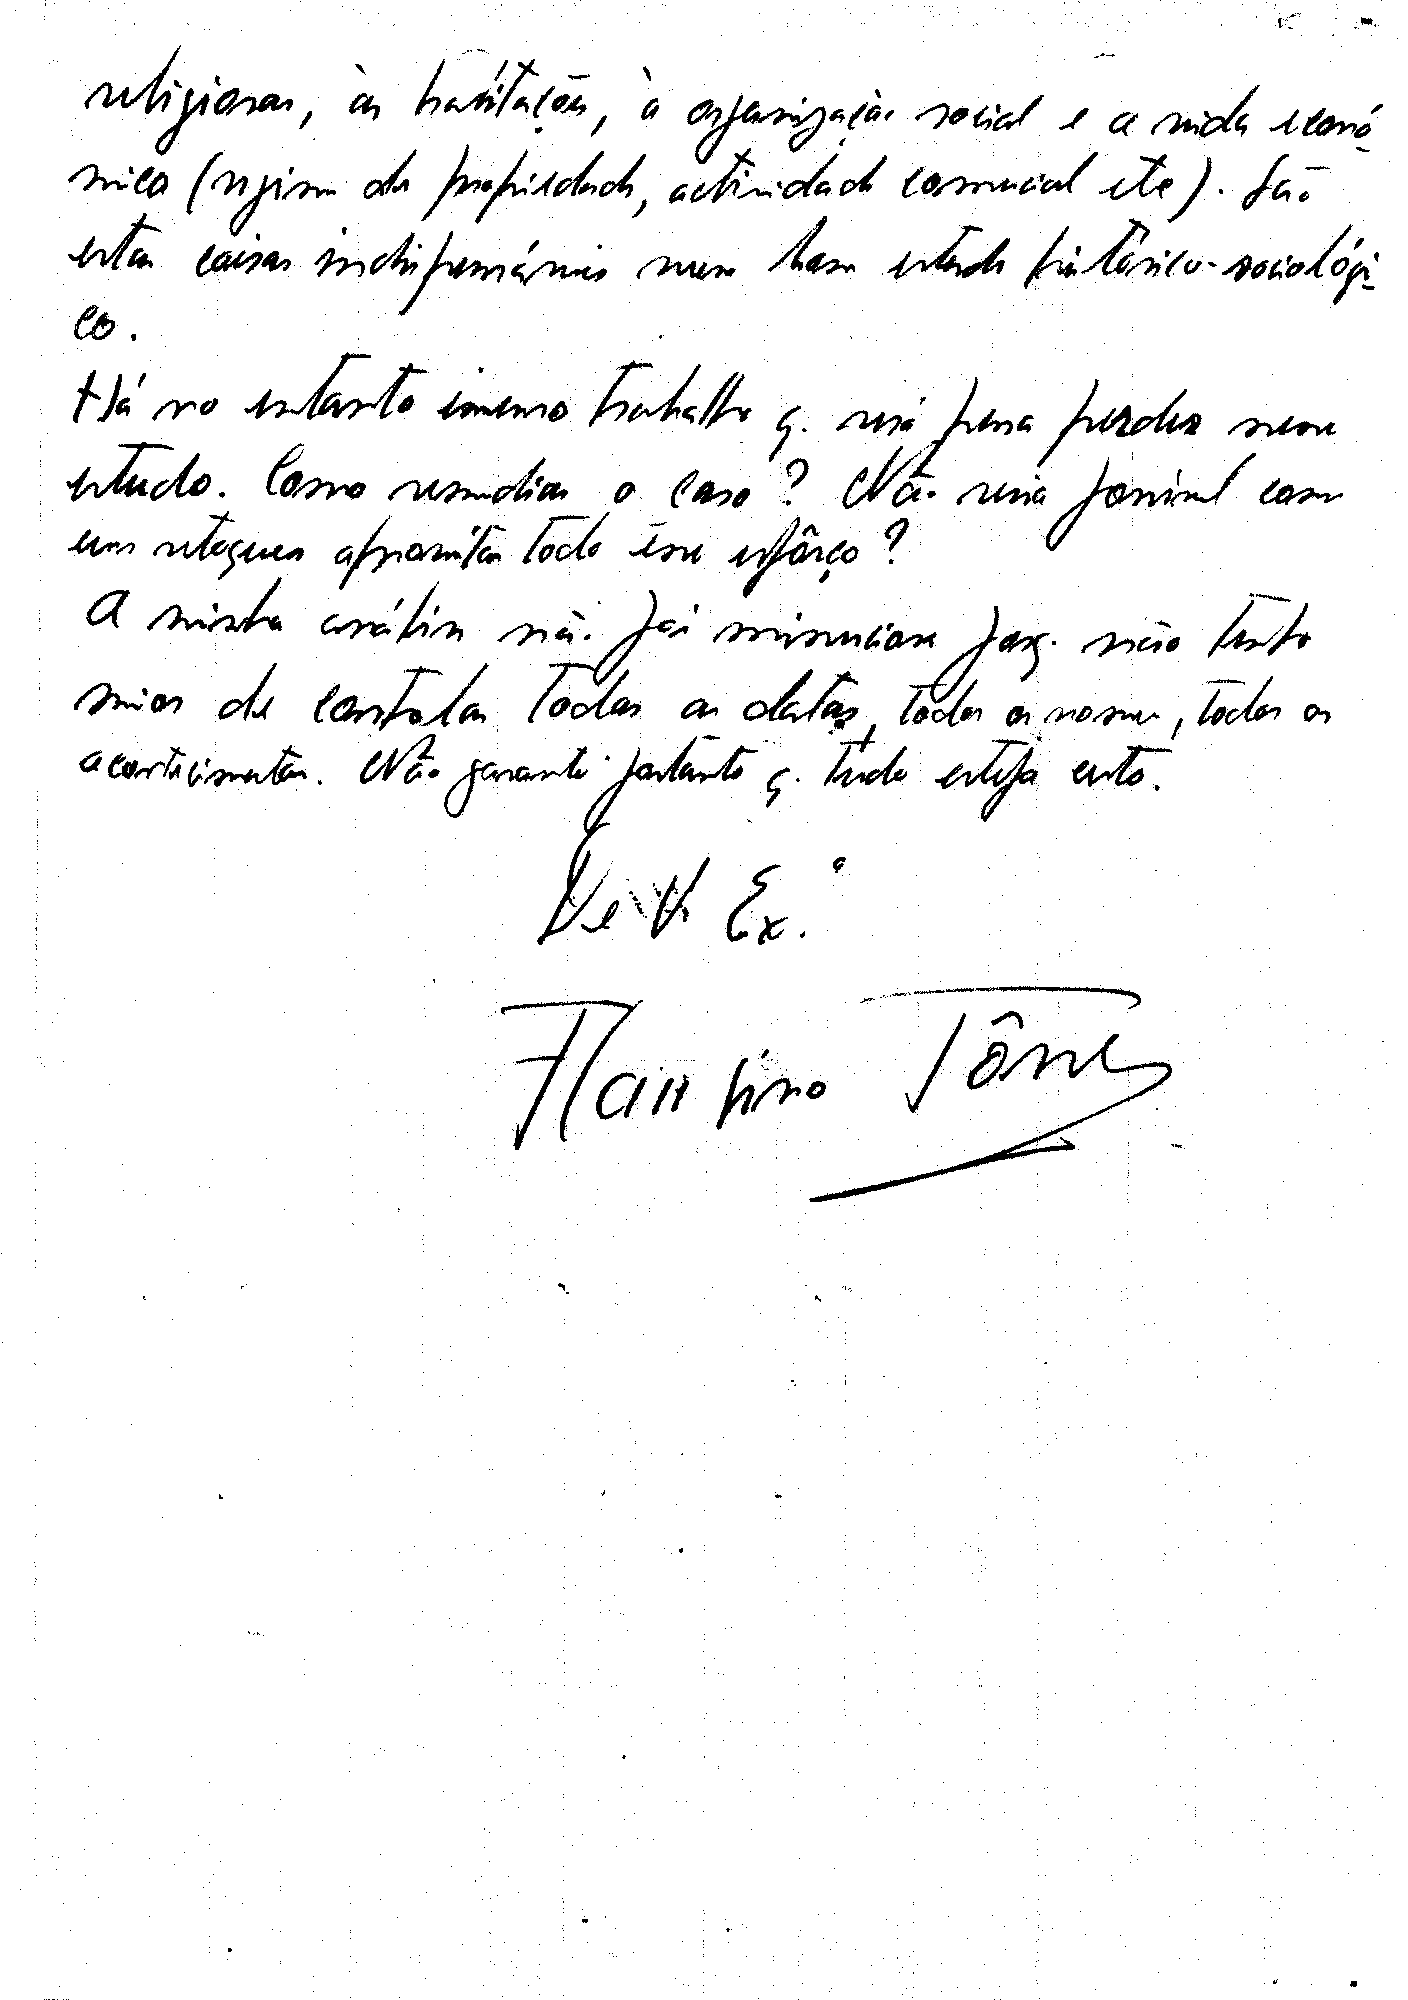 religiosas, às habitações, à organização social e a vida econó-
mica (regime da propriedade, actividade comercial etc). São
estas coisas indispensáveis num bom estudo histórico-sociológi-
co.
Há no entanto imenso trabalho q. será pena perder neste
estudo. Como remediar o caso? Não seria possível com
uns retoques aproveitar todo êsse esfôrço?
A minha análise não foi minuciosa porq. não tenho
meios de controlar todas as datas, todos os nomes, todos os
acontecimentos. Não garanto portanto q. tudo esteja certo.
De V. Ex.ª
Flausino Tôrres